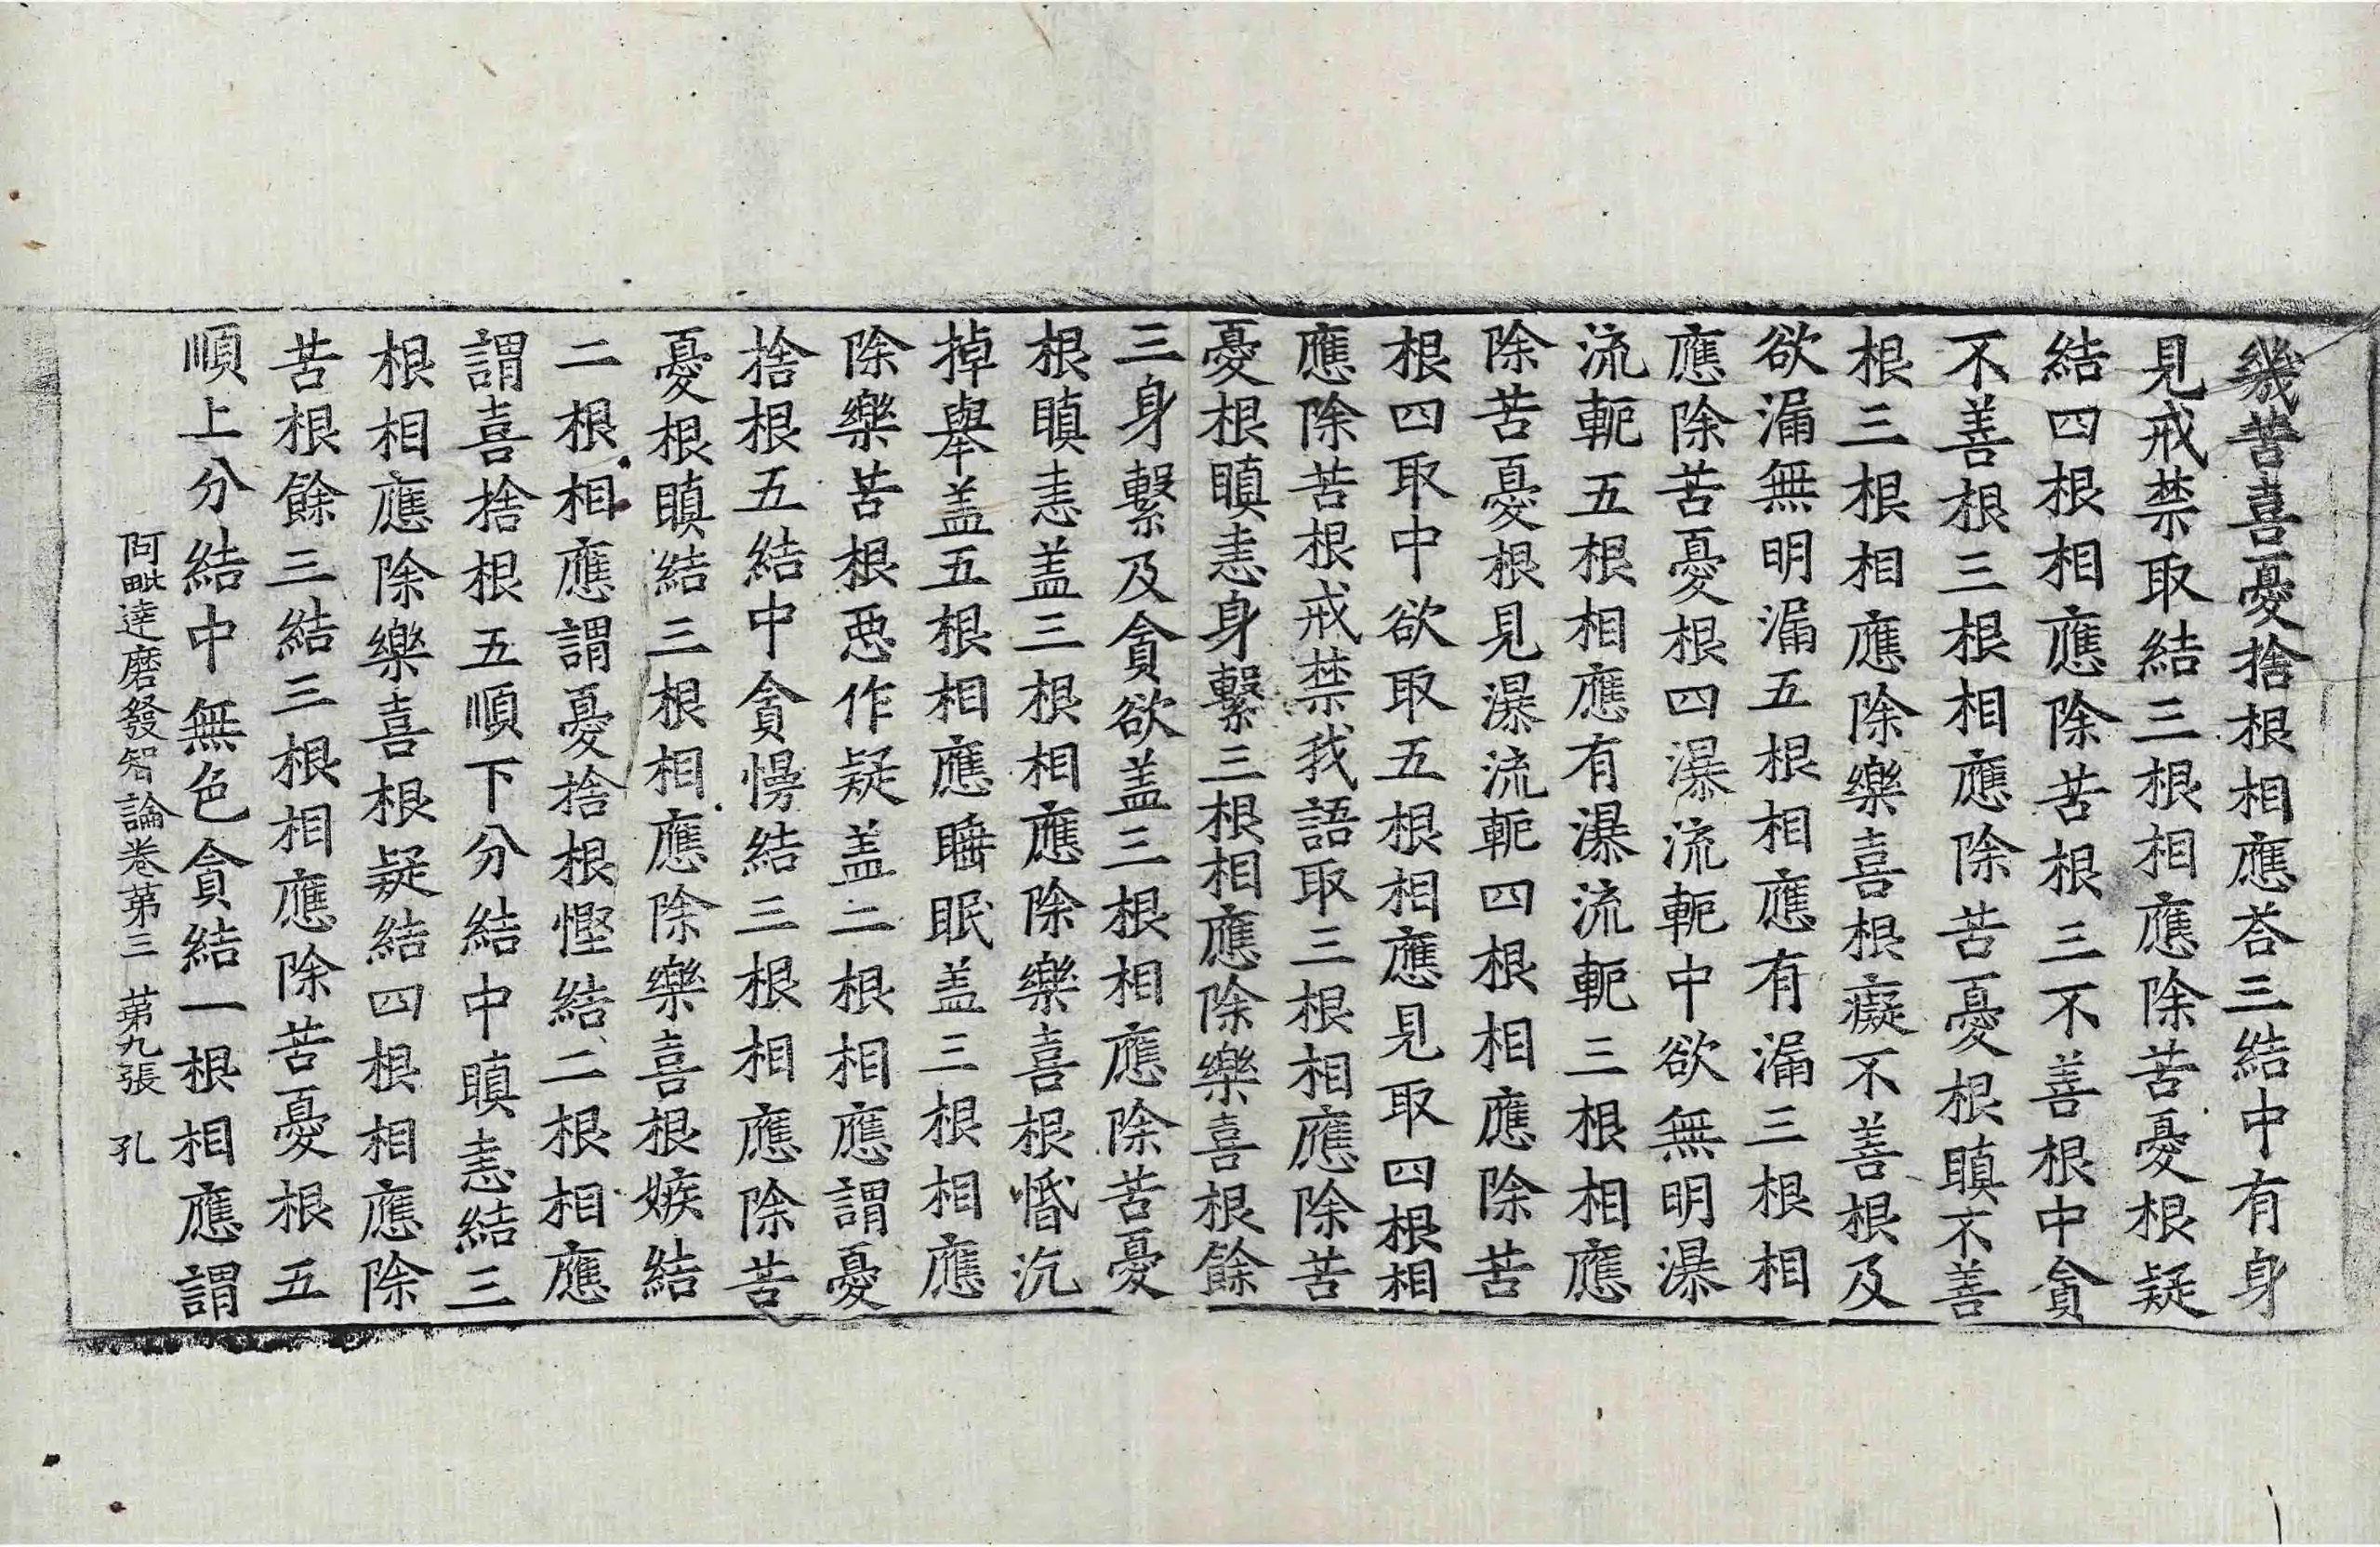 幾苦喜憂捨根相應荅三結中有身
見戒禁取結三根相應除苦憂根疑
結四根相應除苦根三不善根中貪
不善根三根相應除苦憂根瞋不善
根三根相應除樂喜根癡不善根及
欲漏無明漏五根相應有漏三根相
應除苦憂根四瀑流軛中欲無明瀑
流軛五根相應有瀑流軛三根相應
除苦憂根見瀑流軛四根相應除苦
根四取中欲取五根相應見取四根相
應除苦根戒禁我語取三根相應除苦
憂根瞋恚身繫三根相應除樂喜根餘
三身繫及貪欲盖三根相應除苦憂
根瞋恚盖三根相應除樂喜根惛沉
掉舉盖五根相應睡眠盖三根相應
除樂苦根惡作疑盖二根相應謂憂
捨根五結中貪慢結三根相應除苦
憂根瞋結三根相應除樂喜根嫉結
二根相應謂憂捨根慳結二根相應
謂喜捨根五順下分結中瞋恚結三
根相應除樂喜根疑結四根相應除
苦根餘三結三根相應除苦憂根五
順上分結中無色貪結一根相應謂
阿毗達磨發智論卷第三 第九張 孔